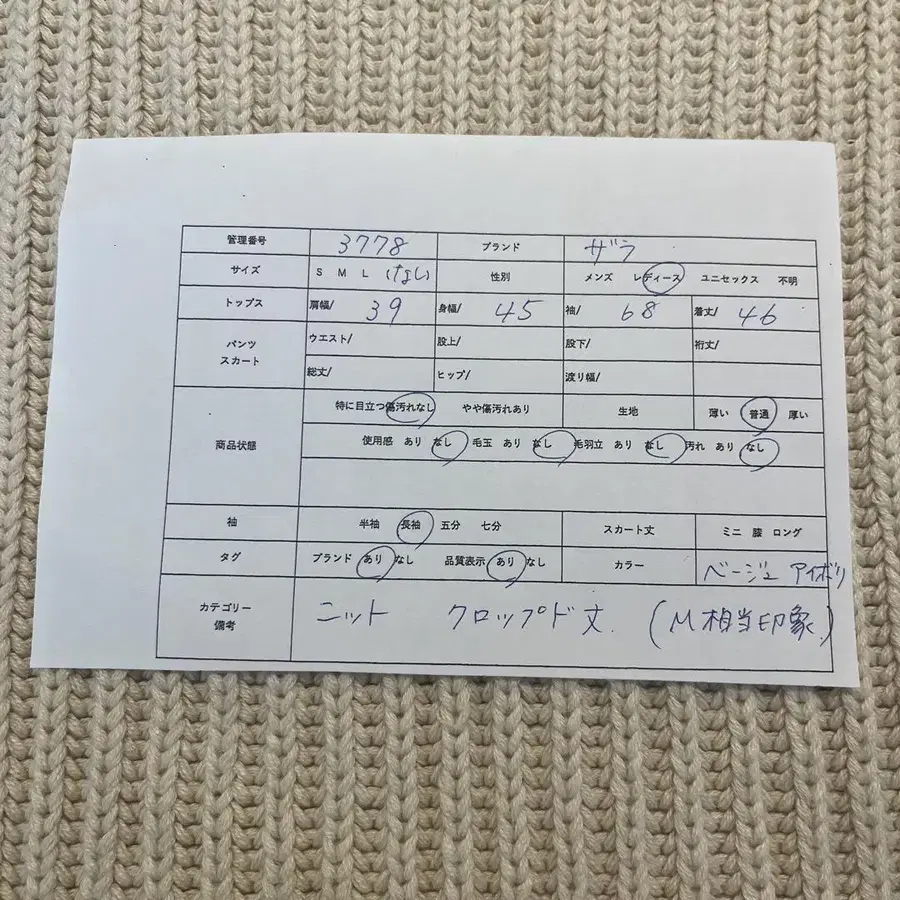 管理番号 3778 ブランド ザラ
サイズ S M L けない 性別 メンズ レディース ユニセックス 不明
トップス 肩幅/ 39 身幅/ 45 袖/ 68 着丈/ 46
パンツ スカート ウエスト/ 股上/ 股下/ 裄丈/
総丈/ ヒップ/ 渡り幅/
特に目立つ傷汚れなし やや傷汚れあり 生地 薄い 普通 厚い
商品状態 使用感 あり なし 毛玉 あり なし 毛羽立 あり なし 汚れ あり なし
袖 半袖 長袖 五分 七分 スカート丈 ミニ 膝 ロング
タグ ブランド あり なし 品質表示 あり なし カラー ベージュ アイボリ
カテゴリー 備考 ニット クロップド丈. (M相当印象.)